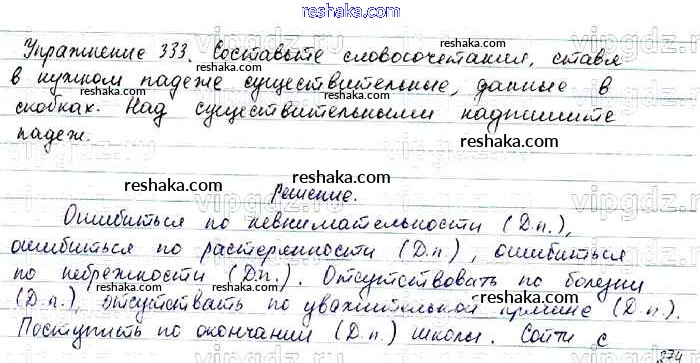 reshaka.com
Упражнение 333. Составьте словосочетания, ставя
в нужном падеже существительные, данные в
скобках. Над существительными надпишите
падеж.
Решение.
Ошибиться по невнимательности (Д.п.),
ошибиться по растерянности (Д.п.), ошибиться
по небрежности (Д.п.). Отсутствовать по болезни
(Д.п.), отсутствать по уважительной причине (Д.п.).
Поступить по окончании (Д.п.) школы. Сойти с
274